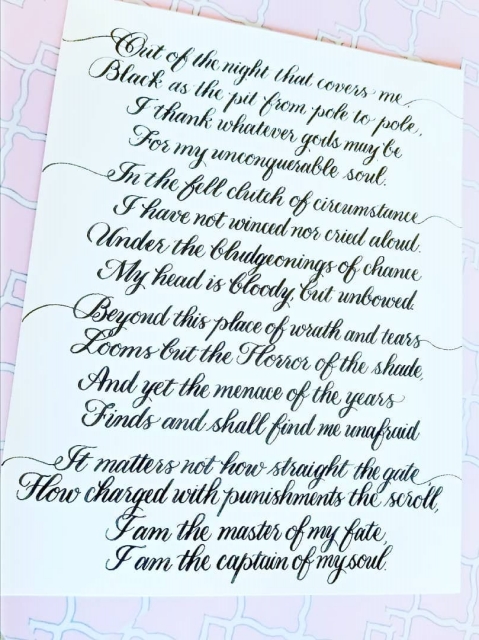 Out of the night that covers me,
Black as the pit from pole to pole,
I thank whatever gods may be
For my unconquerable soul.
In the fell clutch of circumstance
I have not winced nor cried aloud.
Under the bludgeonings of chance
My head is bloody, but unbowed.
Beyond this place of wrath and tears
Looms but the Horror of the shade,
And yet the menace of the years
Finds and shall find me unafraid
It matters not how straight the gate,
How charged with punishments the scroll,
I am the master of my fate,
I am the captain of my soul.